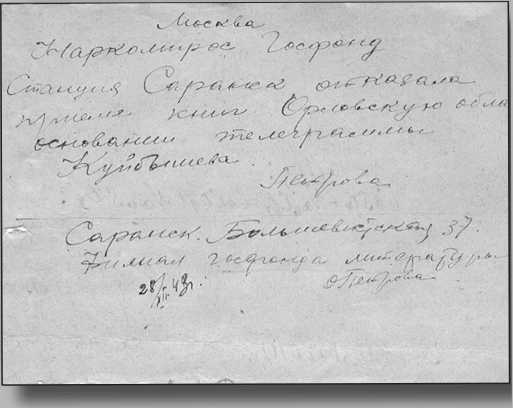 Москва
Наркомпрос Госфонд
Станция Саранск отказала
приеме книг Орловскую обла
основании телеграммы
Куйбышева.
Петрова
Саранск. Большевистская 37.
Филиал госфонда литературы
Петрова
28/IV 43г.